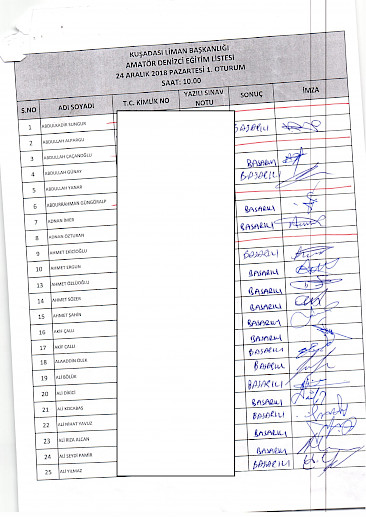 KUŞADASI LİMAN BAŞKANLIĞI
AMATÖR DENİZCİ EĞİTİM LİSTESİ
24 ARALIK 2018 PAZARTESİ 1. OTURUM
SAAT: 10.00
S.NO ADI SOYADI T.C. KİMLİK NO YAZILI SINAV NOTU SONUÇ İMZA
1 ABDULKADİR SUNGUR BAŞARILI
2 ABDULLAH
3 ABDULLAH ÇAÇANOĞLU BAŞARILI
4 ABDULLAH GÜNAY BAŞARILI
5 ABDULLAH YANAR
6 ABDURRAHMAN GÜNGÖRALP BAŞARILI
7 ADNAN BAŞARILI
8 ADNAN ÖZTURAN
9 AHMET BAŞARILI
10 AHMET ERGUN BAŞARILI
13 AHMET BAŞARILI
14 AHMET SÖZEN BAŞARILI
15 AHMET ŞAHİN BAŞARILI
16 AKİF ÇALLI BAŞARILI
17 AKİF ÇALLI BAŞARILI
18 ALAADDİN BAŞARILI
19 ALİ BÖLÜK BAŞARILI
20 ALİ BAŞARILI
21 ALİ KOCABAŞ BAŞARILI
22 ALİ YAVUZ BAŞARILI
23 ALİ RIZA ALCAN
24 ALİ SEYDİ BAŞARILI
25 ALİ YILMAZ BAŞARILI